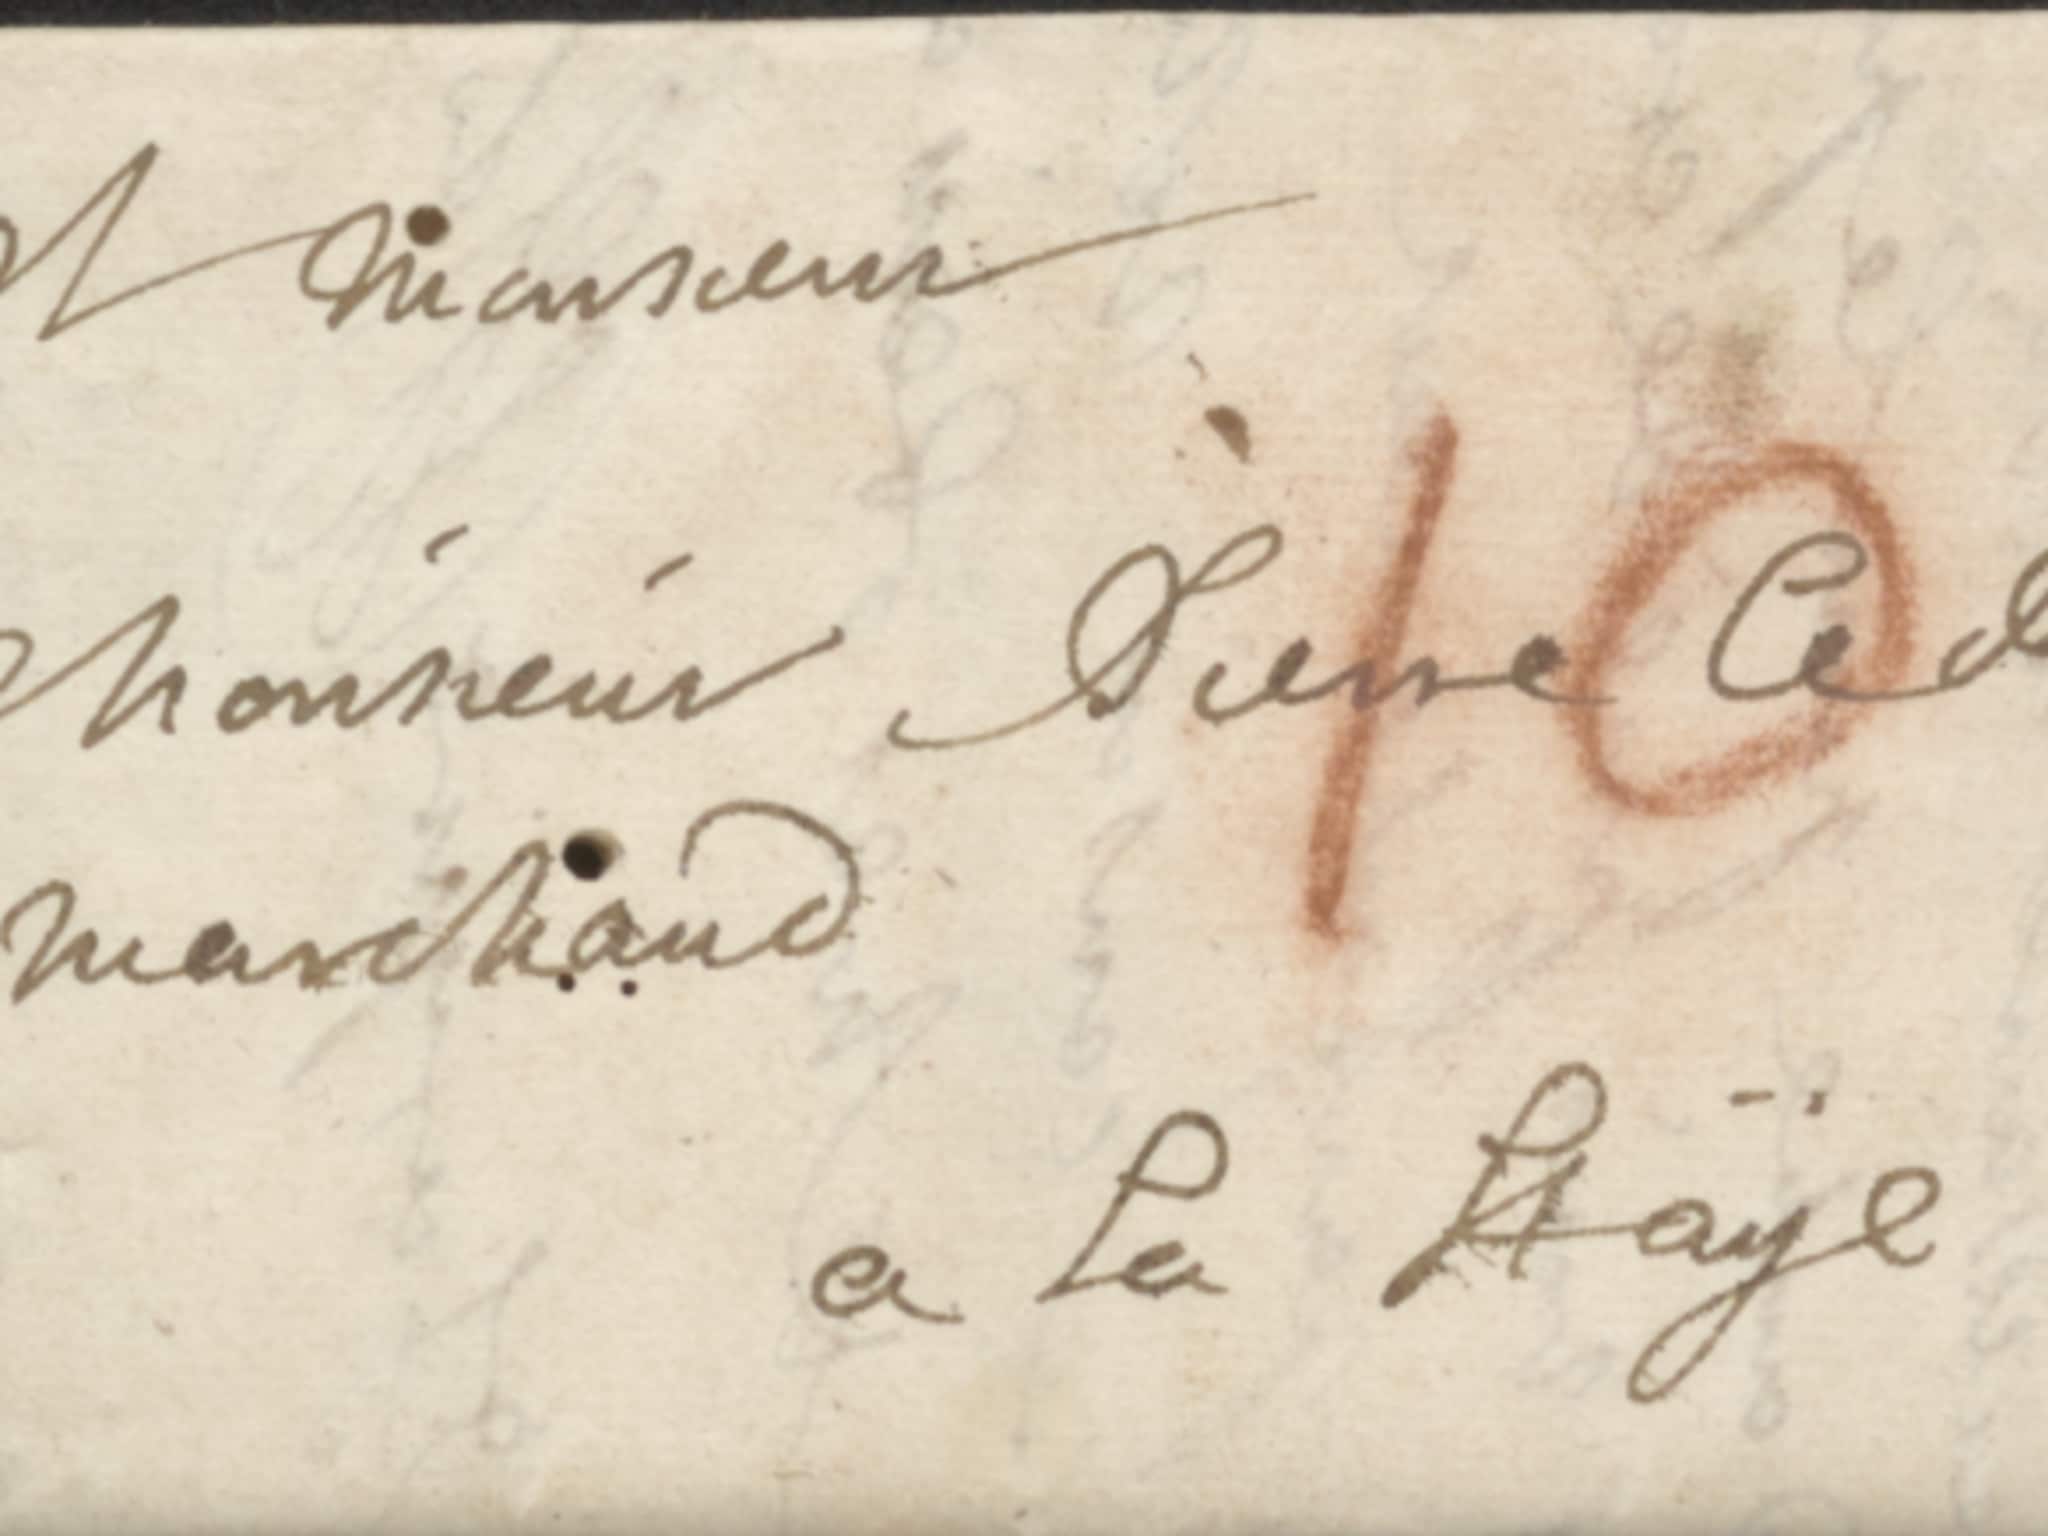 A Monsieur
10
Monsieur Pierre Le
Marchand
a La Haÿe